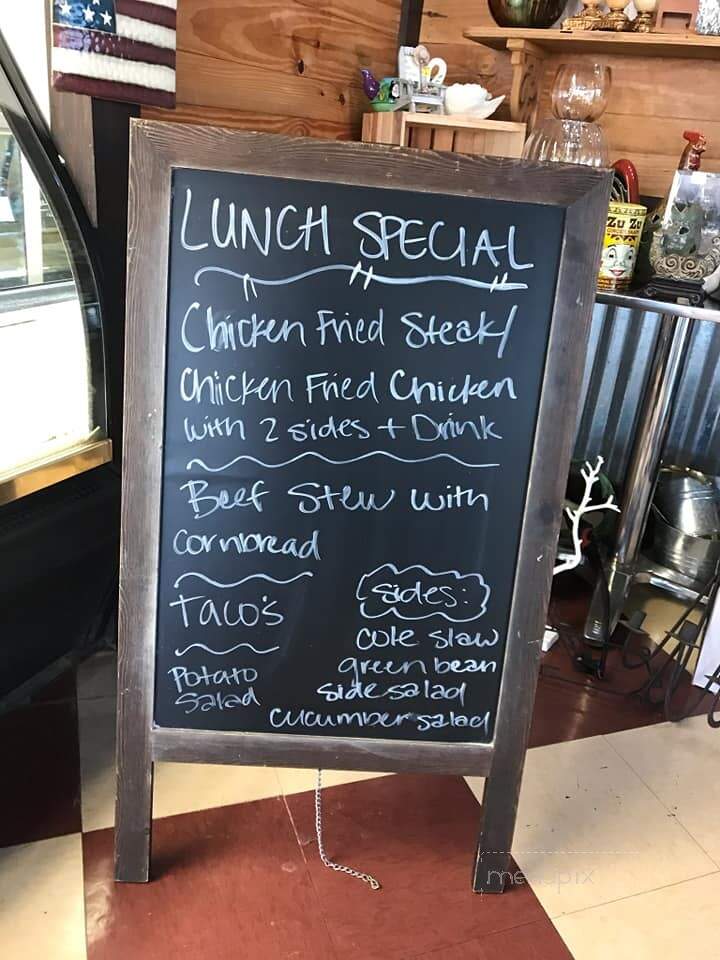 LUNCH SPECIAL
Chicken Fried Steak/
Chicken Fried Chicken
with 2 sides + Drink
Beef Stew with
cornbread
Taco's
Potato
Salad
Sides:
cole slaw
green bean
side salad
cucumber salad
Zu Zu